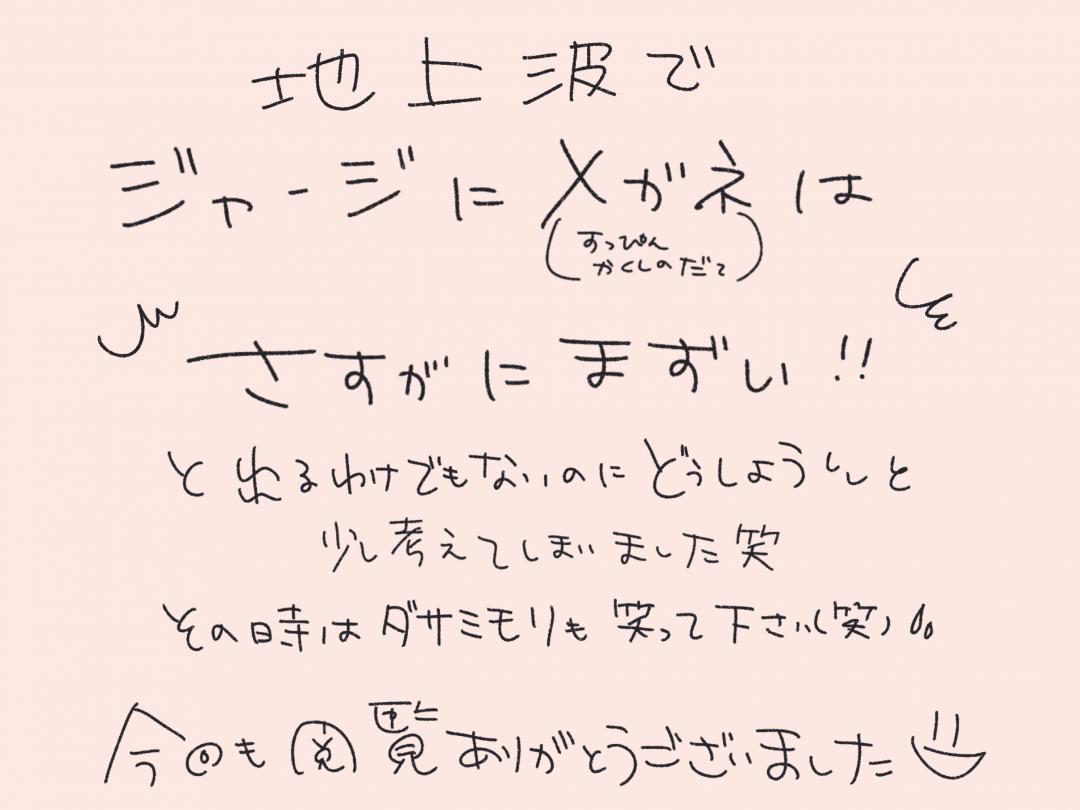 地上波で
ジャージにメガネは
(すっぴん
かくしのだて)
さすがにまずい!!
と出るわけでもないのにどうしようと
少し考えてしまいました笑
その時はダサミモリも笑って下さい(笑)
今回も閲覧ありがとうございました